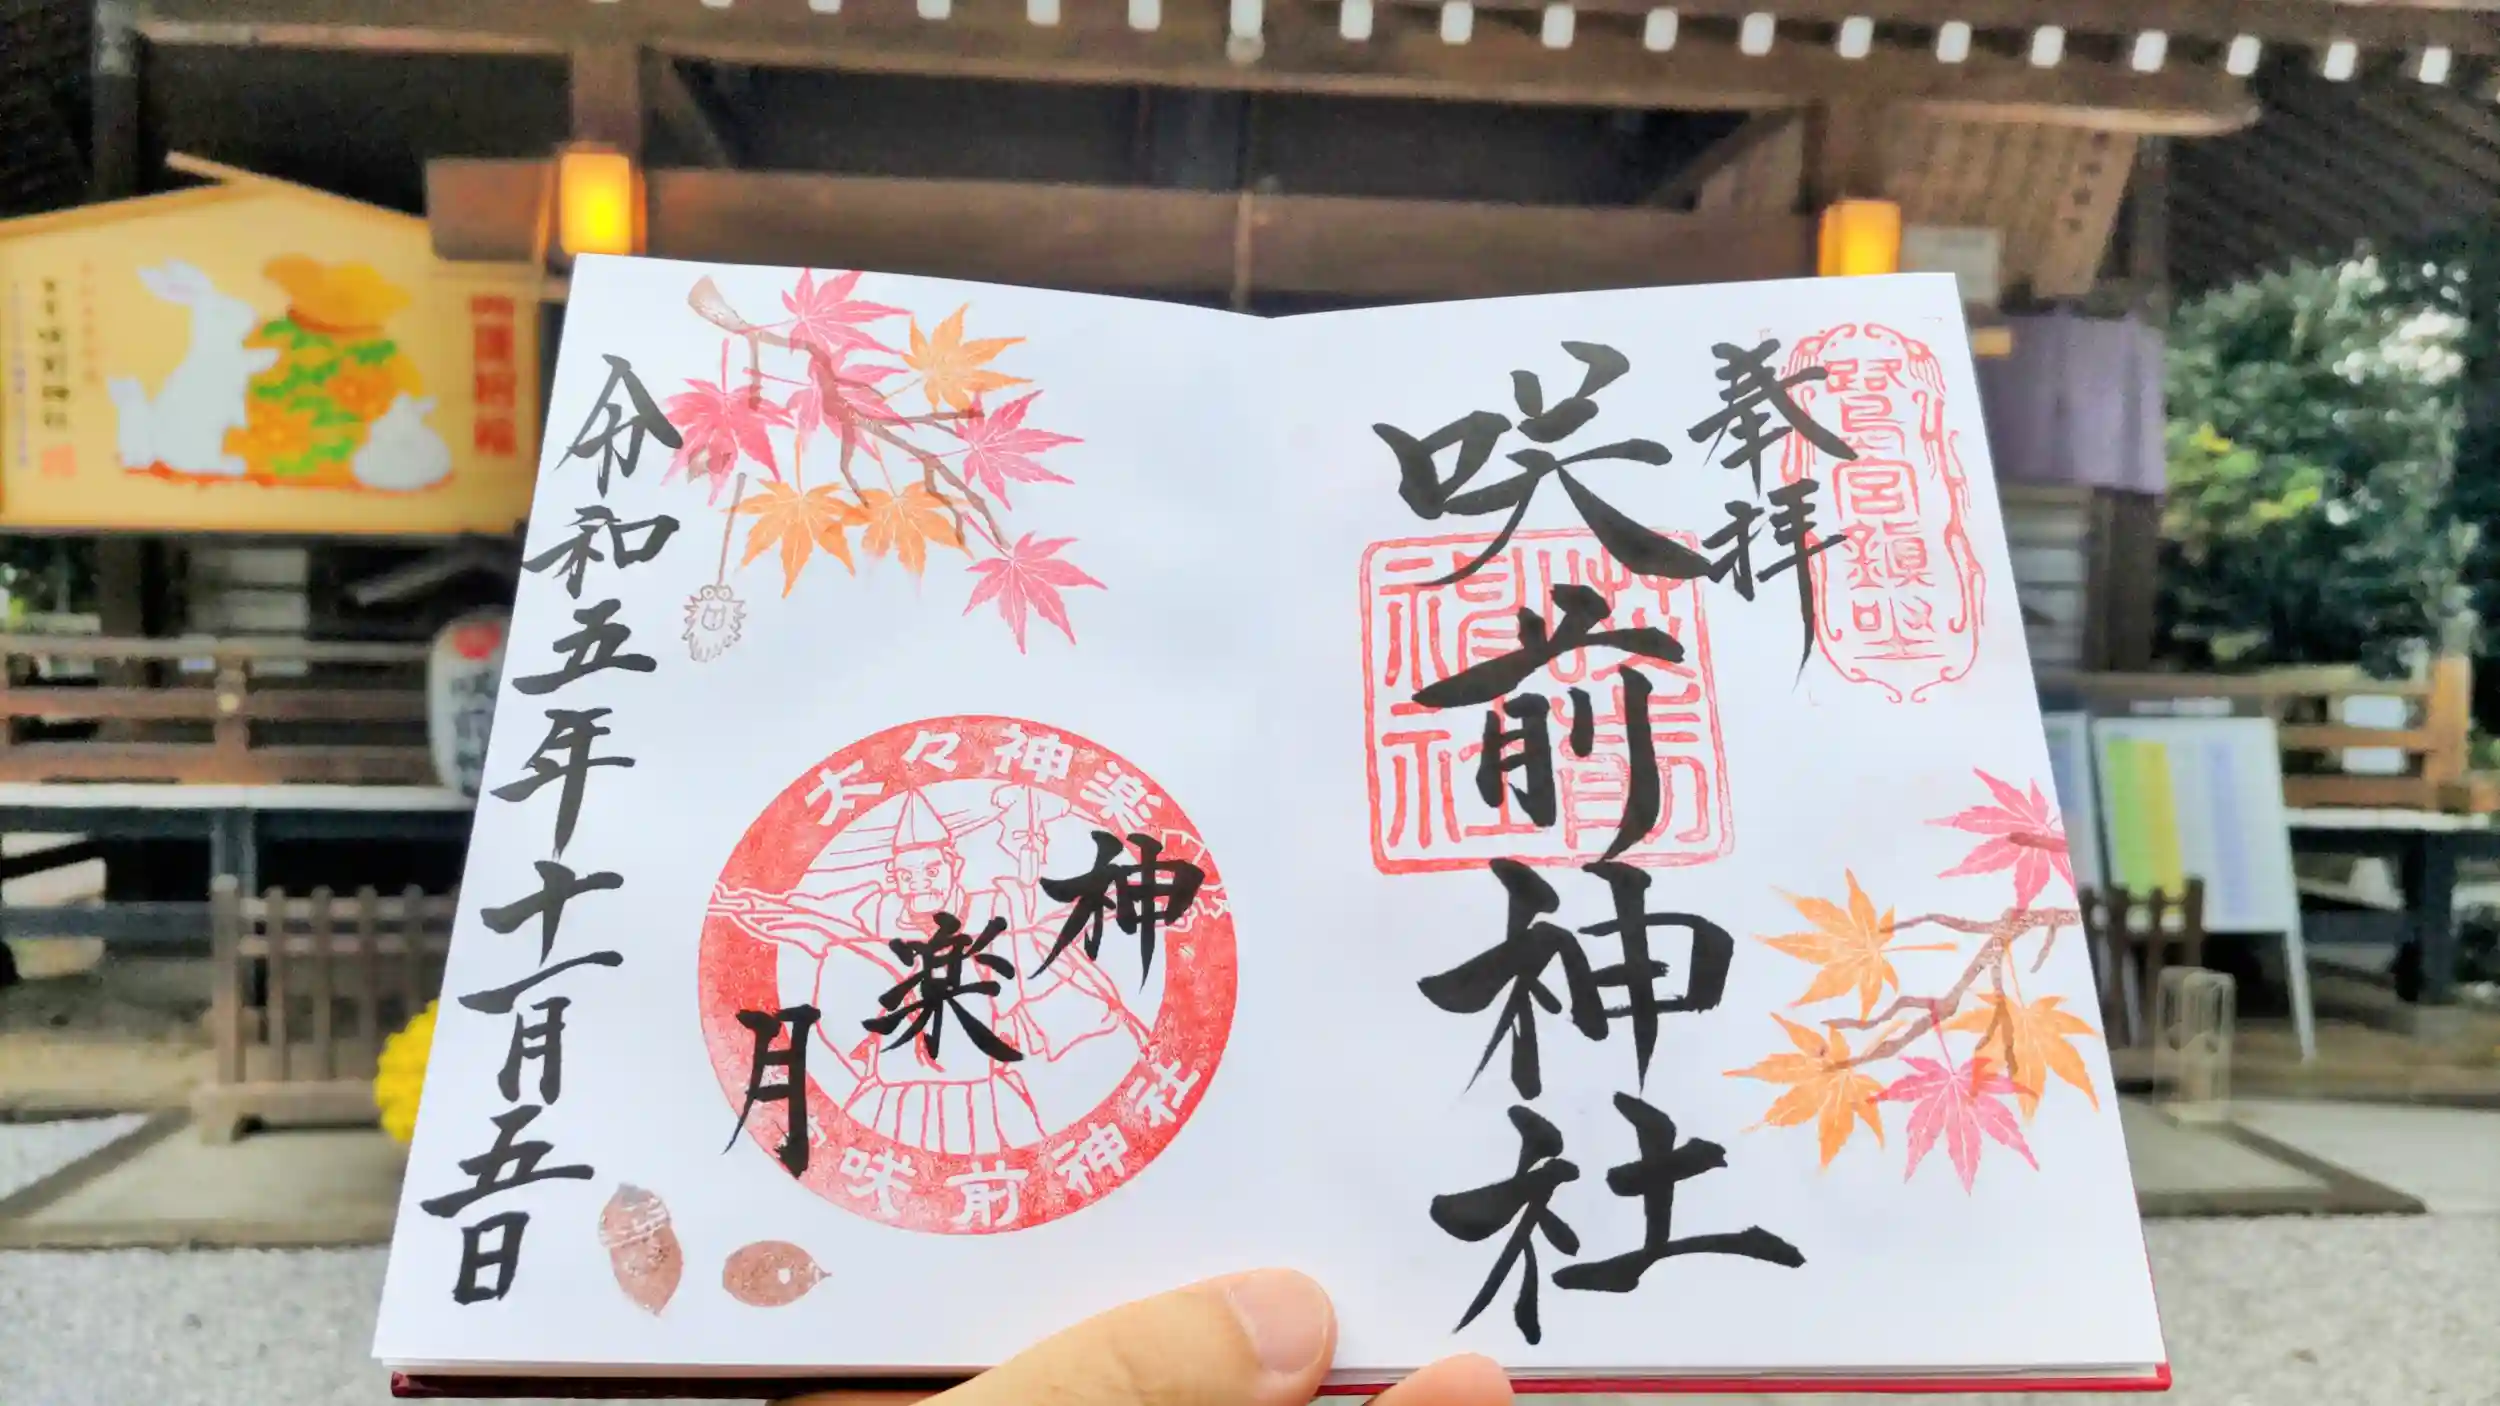 奉拝
咲前神社
鷺宮鎮座
咲前神社
神楽月
太々神楽
咲前神社
令和五年十一月五日